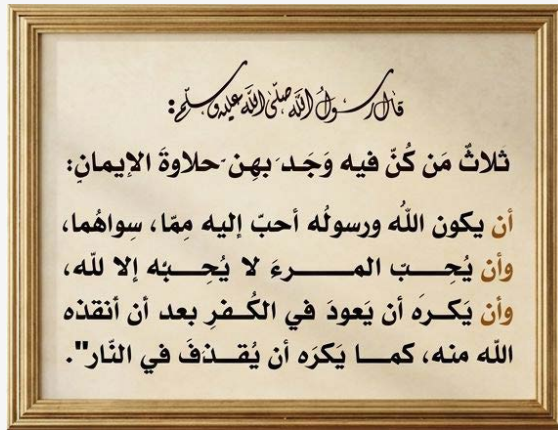 قال رسول الله صلى الله عليه وسلم:
ثلاثٌ مَن كُنّ فيه وَجَد َبهِن َحلاوةَ الإيمانِ:
أن يكون اللهُ ورسولُه أحبّ إليه مِمّا، سِواهُما،
وأن يُحِــب المــــرءَ لا يُحِـبّه إلا للّه،
وأن يَكــرَه أن يَعودَ في الكُــفرِ بعد أن أنقذه
الله منه، كمــا يَكرَه أن يُقــذفَ في النّار".